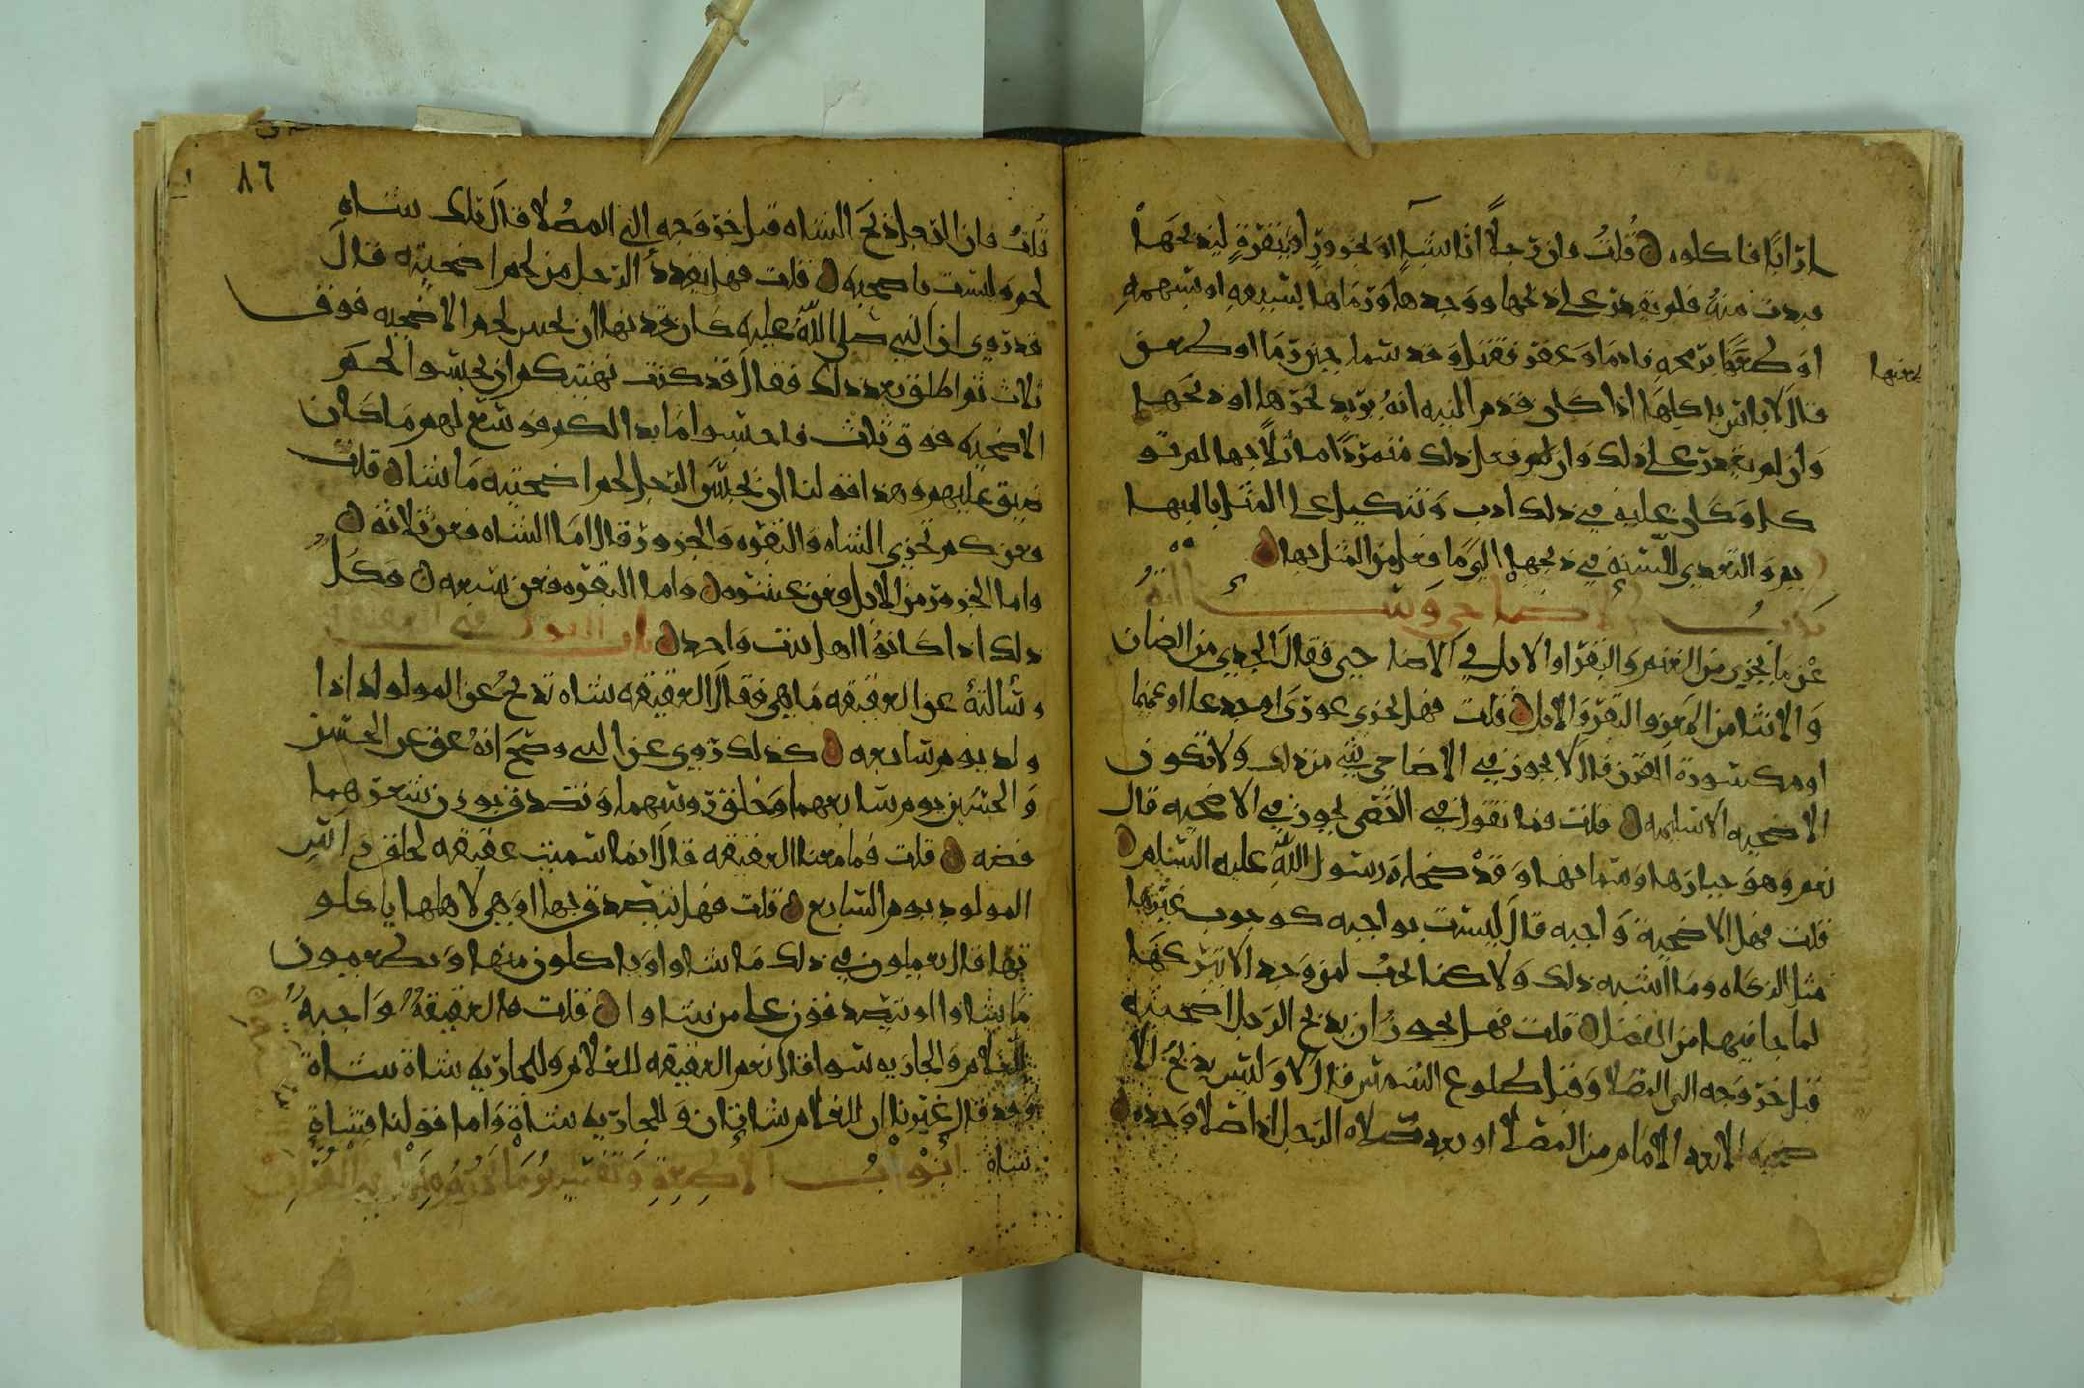 ارابا فاكلوه قلت فان رجلا اتا شاه او بجزور او ببقرة ليذبحها
فبدت منه فلم يقدر على ذبحها ووجدها ورماها بسيفه او بسهمه
او طعنها برمحه فادما وعقر فقتل وقد سما حين رما او طعن
يعنها
قال لا باس باكلها اذا كان قدم النيه انه يريد نحرها او ذبحها
وان لم يقدر على ذلك وان لم يفعل ذلك متمردا ماثلا بها لم تو
كل وكان عليه في ذلك ادب وتنكيل على المثل بالبهيـ
يم والتعدي للسنه في ذبحها الى ما فعل من المثل بها
باب الاضاحي وسالته
عن ما يجزي من الغنم والبقر او الابل في الاضاحي فقال الجدي من الضان
والانثا من المعز والبقر والابل قلت فهل يجزي عورى او جدعا او عميا
او مكسورة القرن قال لا يجوز في الاضاحي شي من ذلك ولا تكون
الاضحيه الا سليمه قلت فما تقول في الخصي يجوز في الاضحيه قال
نعم وهو خيارها وسمانها وقد ضحا به رسول الله عليه السلم
قلت فهل الاضحية واجبه قال ليست بواجبه كوجوب غيرها
مثل الزكاه وما اشبه ذلك ولا كنا نحب لمن وجد الا يتركها
لما جا فيها من الفضل قلت فهل يجوز ان يذبح الرجل اضحيته
قبل خروجه الى المصلا وقبل طلوع الشمس قال لا وليس يذبح الا
ضحيه الا بعد الامام من المصلا او بعد صلاه الرجل اذا صلا وحده
٨٦
قلت فان الرجل ذبح الشاه قبل خروجه الى المصلا قال تلك شاه
لحم وليست باضحيه قلت فهل يعدد الرجل من لحم اضحيته قال
قد روي ان النبي صلى الله عليه كان قد نها ان يحبس لحم الاضحيه فوق
ثلاث ثم اطلق بعد ذلك فقال قد كنت نهيتكم ان تحبسوا لحم
الاضحيه فوق ثلث فاحبسوا ما بدا لكم فوسع لهم ما كان
ضيق عليهم وهذا قولنا ان يحبس الرجل لحم اضحيته ما شا قلت
وعن كم تجزي الشاه والبقره والجزور قال اما الشاه فعن ثلاثه
واما الجزور من الابل فعن عشره واما البقره فعن سبعه وكل
ذلك اذا كانوا اهل بيت واحد باب القول في العقيقه
وسالته عن العقيقه ما هي فقال العقيقه شاه تذبح عن المولود اذا
ولد يوم سابعه كذلك روي عن النبي وصح انه عق عن الحسن
والحسين يوم سابعهما وحلق روسهما وتصدق بوزن شعرهما
فضه قلت فما معنا العقيقه قال انما سميت عقيقه لحلق راس
المولود يوم السابع قلت فهل يتصدق بها او هي لاهلها ياكلو
نها قال يعملون في ذلك ما شاوا وياكلون منها ويطعمون
ما شاوا او يتصدقون على من شاوا قلت فالعقيقة واجبه
للغلام والجاريه سوا قال نعم العقيقه للغلام وللجاريه شاة شاة
وقد قال غيرنا ان للغلام شاتان وللجاريه شاة واما قولنا فشاة
شاة ابواب الاطعمة وتفسير ما